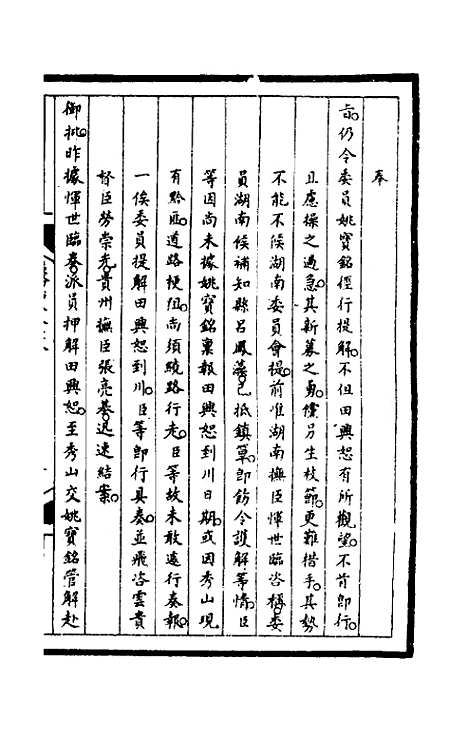 奉
旨。仍令委員姚寶銘徑行提解。不但田興恕有所觀望。不肯即行。
且慮操之過急。其新募之勇。儻另生枝節。更難措手。其勢
不能不候湖南委員會提。前准湖南撫臣惲世臨咨稱。委
員湖南候補知縣呂鳳藻。已抵鎮筸。即飭令護解等情。臣
等因尚未據姚寶銘稟報田興恕到川日期。或因秀山現
有黔匪。道路梗阻。尚須繞路行走。臣等故未敢遠行奏報。
一俟委員提解田興恕到川。臣等即行具奏。並飛咨雲貴
督臣勞崇光。貴州撫臣張亮基。迅速結案。
御批。昨據惲世臨奏。派員押解田興恕。至秀山交姚寶銘管解赴